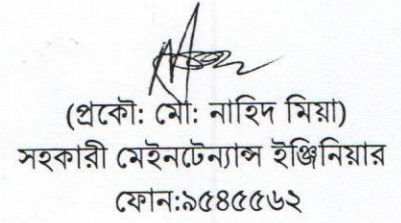 (প্রকৌ: মো: নাহিদ মিয়া)
সহকারী মেইনটেন্যান্স ইঞ্জিনিয়ার
ফোন:৯৫৪৫৫৬২